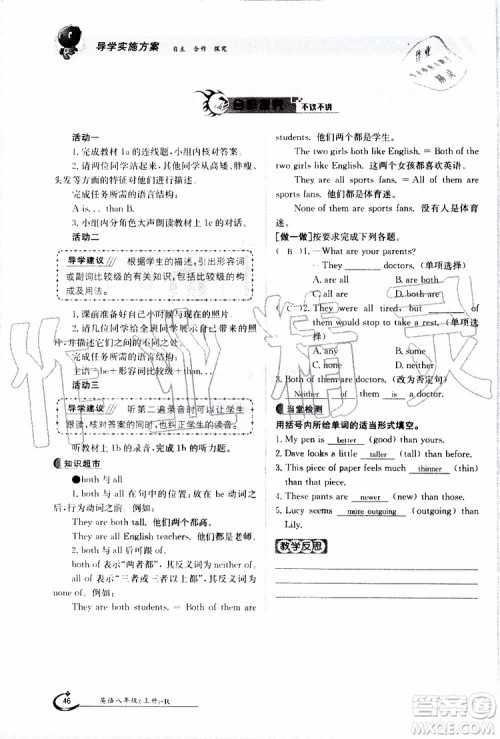 导学实施方案 自主 合作 探究
不议不讲
活动一
1. 完成教材1a的连线题,小组内核对答案。
2. 请两位同学站起来,同学们从高矮、胖瘦、
头发等方面的特征对他们进行描述。
完成任务所需的语言结构:
A is. . . than B.
3. 小组内分角色大声朗读教材1c的对话。
活动二
导学建议 根据学生的描述,引出形容词
或副词比较级的有关知识,包括比较级的构
成及用法。
1. 课前准备几张小时候与现在的照片。
2. 请几位同学给全班同学展示并描述自己
的照片,并进行比较。
完成任务所需的语言结构:
主语+be+形容词比较级+than. . .
活动三
导学建议 听第二遍录音时可以让学生
跟读,核对答案的同时,纠正学生的读音。
听教材1b的录音,完成1b的听力题。
知识超市
●both与all
both与all在句中的位置:放在be动词之后,
行为动词之前。例如:
They are both tall. 他们两个都高。
They are all English teachers. 他们都是老师。
both of表示“两者都”,谓语动词用复数形式;
all of表示“三者或三者以上都”,谓语动词也用复
数形式。例如:
They are both students. = Both of them are
students. 他们两个都是学生。
The two girls both like English. = Both of the
two girls like English. 这两个女孩都喜欢英语。
They are all sports fans. = All of them are
sports fans. 他们都是体育迷。
None of them are sports fans. 他们都不是体
育迷。
[做一做]按要求完成下列各题。
( B )1. —What are your parents?
—They are doctors. (单项选择)
A. all B. both
C. all are D. both are
( C )2. They were all tired, but
of them would take a rest. (单项选择)
A. any B. some
C. none D. neither
3. Both of them are doctors. (改为否定句)
Neither of them is a doctor.
当堂检测
用括号内所给单词的适当形式填空。
1. My pen is better (good) than yours.
2. Dave looks a little taller (tall) than Sam.
3. This piece of paper feels much thinner (thin)
than that piece.
4. These pants are newer (new) than those.
5. Lucy seems more outgoing (outgoing) than
Lily.
教学反思
46 英语八年级(上册)·R